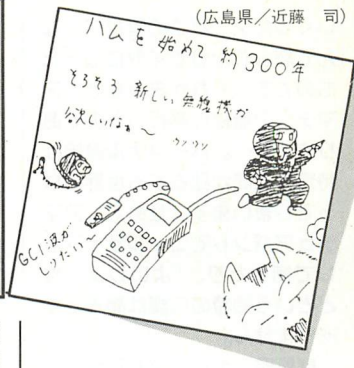 (広島県/近藤　司)
ハムを始めて約300年
そろそろ新しい無線機が
欲しいなぁ〜 ウソウソ
GC1波が
しりたい〜